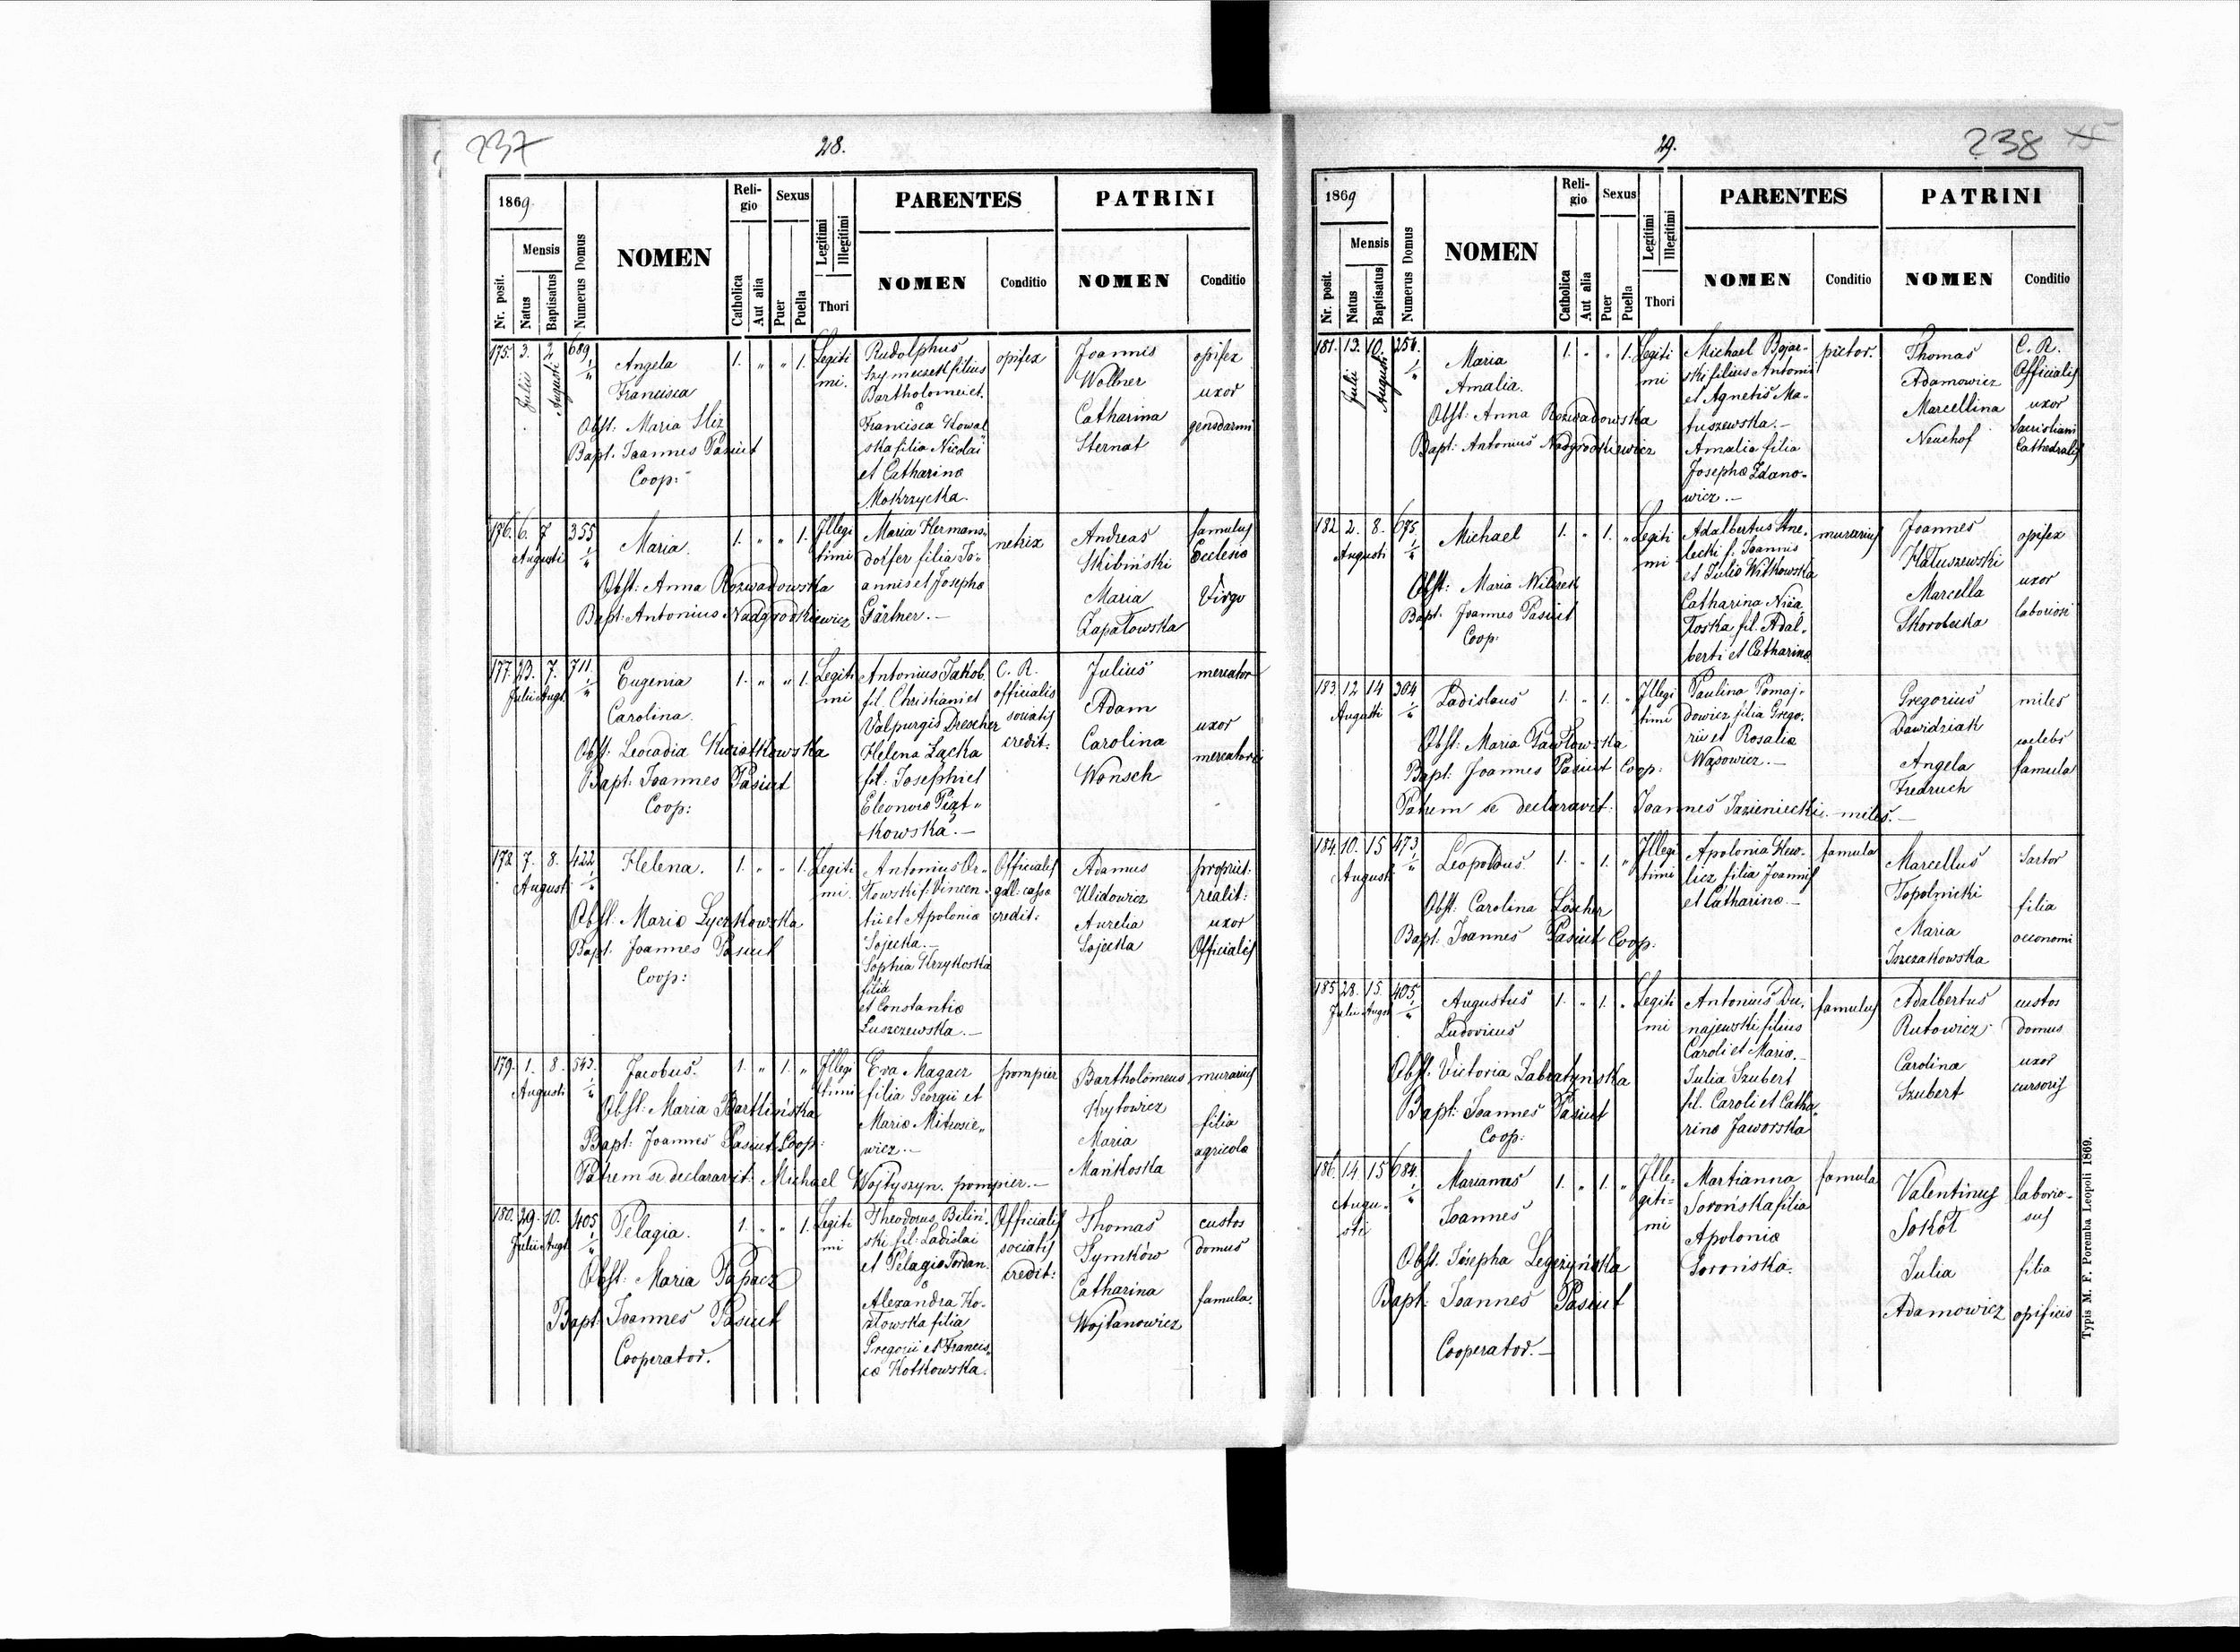 237
28.
1869.
Nr. posit.
Mensis
Natus
Baptisatus
Numerus Domus
NOMEN
Religio
Catholica
Aut alia
Sexus
Puer
Puella
Legitimi
Illegitimi
Thori
PARENTES
NOMEN
Conditio
PATRINI
NOMEN
Conditio
175. 3. Julii 2 Augusti 689 1/4
Angela
Francisca
Obst: Maria Sliz
Bapt. Joannes Pasiut
Coop:
1. „ „ 1.
Legiti
mi.
Rudolphus
Szymeczek filius
Bartholomei et.
Francisca Kowal
ska filia Nicolai
et Catharina
Mokrzycka.
opifex
Joannes
Wollner
Catharina
Sternat
opifex
uxor
gensdarmi
176. 6. 7 Augusti 355 1/4
Maria.
Obst: Anna Rozwadowska
Bapt: Antonius Nadgrodkiewicz
1. „ „ 1.
Illegi
timi
Maria Hermans„
dorfer filia Jo„
annis et Josepha
Gärtner.—
netrix
Andreas
Skibiński
Maria
Zapałowska
famulus
Ecclena
Virgo
177. 23. Julii 7. Augt. 711. 1/4
Eugenia
Carolina.
Obst: Leocadia Kwiatkowska
Bapt: Joannes Pasiut
Coop:
1. „ „ 1.
Legiti
mi
Antonius Jakob.
fil. Christiani et
Valpurgis Drescher
Helena Łącka
fil: Josephi et
Eleonora Piąt„
kowska.—
C. R.
officialis
sociatis
credit:
Julius
Adam
Carolina
Wonsch
mercator
uxor
mercatoris
178. 7. 8. Augusti 422 1/4
Helena.
Obst. Maria Łyczkowska
Bapt. Joannes Pasiut
Coop:
1. „ „ 1.
Legiti
mi.
Antonius Or„
łowski f: Vincen„
tii et Apolonia
Sojecka.—
Sophia Krzykoska
filia
et Constantia
Łuszczewska.—
Officialis
gall: cassa
credit:
Adamus
Ulidowicz
Aurelia
Sojecka
propriet:
realit:
uxor
Officialis
179. 1. 8. Augusti 543. 1/4
Jacobus.
Obst: Maria Bartlińska
Bapt: Joannes Pasiut Coop:
Patrem se declaravit: Michael Wojtyszyn. pompier.—
1. „ 1. „
Illegi
timi
Eva Magacz
filia Georgii et
Maria Mitrosie„
wicz.—
pompier
Bartholomeus
Krytowicz
Maria
Mańkoska
murarius
filia
agricola
180. 29. Julii 10. Augt. 405 1/4
Pelagia.
Obst: Maria Papacz
Bapt: Joannes Pasiut
Cooperator.
1. „ „ 1.
Legiti
mi
Theodorus Biliń„
ski fil: Ladislai
et Pelagia Jordan.
Alexandra Ko„
złowska filia
Gregorii et Francis„
ca Kotkowska.
Officialis
sociatis
credit:
Thomas
Symków
Catharina
Wojtanowicz
custos
domus
famula.
29.
238
1869
Nr. posit.
Mensis
Natus
Baptisatus
Numerus Domus
NOMEN
Religio
Catholica
Aut alia
Sexus
Puer
Puella
Legitimi
Illegitimi
Thori
PARENTES
NOMEN
Conditio
PATRINI
NOMEN
Conditio
181. 13. Julii 10. Augusti 254. 1/4
Maria
Amalia.
Obst: Anna Rozwadowska
Bapt: Antonius Nadgrodkiewicz
1. „ „ 1.
Legiti
mi
Michael Bojar„
ski filius Antonii
et Agnetis Ma„
tuszewska.—
Amalia filia
Josepha Zdano„
wicz.—
pictor.
Thomas
Adamowicz
Marcellina
Neuhof
C. R.
Officialis
uxor
Sacristiani
Cathedralis
182 2. 8. Augusti 675. 1/4
Michael
Obst: Maria Wilczek
Bapt. Joannes Pasiut
Coop:
1. „ 1. „
Legiti
mi
Adalbertus Strze
lecki f. Joannis
et Julia Witkowska
Catharina Niża
łoska fil. Adal„
berti et Catharina.
murarius
Joannes
Kałuszewski
Marcella
Skorobecka
opifex
uxor
laboriosi
183. 12 14 Augusti 304 1/4
Ladislaus
Obst: Maria Pawłowska
Bapt: Joannes Pasiut Coop:
Patrem se declaravit: Joannes Jazieniecki.—miles.—
1. „ 1. „
Illegi
timi
Paulina Pomaj„
dowicz filia Grego„
rii et Rosalia
Wąsowicz.—
Gregorius
Dawidziak
Angela
Fredruch
miles
coelebs
famula
184. 10. 15 Augusti 473. 1/4
Leopoldus
Obst: Carolina Löscher
Bapt: Joannes Pasiut Coop.
1. „ 1. „
Illegi
timi
Apolonia Hew„
licz filia Joannis
et Catharina.—
famula
Marcellus
Topolnicki
Maria
Iszczakowska
Sartor
filia
oeconomi
185. 28. Julii 15. Augt 405. 1/4
Augustus
Ludovicus
Obst: Victoria Zabratyńska
Bapt: Joannes Pasiut
Coop:
1. „ 1. „
Legiti
mi
Antonius Du„
najewski filius
Caroli et Maria.—
Julia Szubert
fil. Caroli et Catha„
rina Jaworska
famulus
Adalbertus
Rutowicz
Carolina
Szubert
custos
domus
uxor
cursoris
186. 14. 15 Augusti 684. 1/4
Marianus
Joannes
Obst. Josepha Legeżyńska
Bapt: Joannes Pasiut
Cooperator.—
1. „ 1. „
Ille„
giti=
mi
Martianna
Sorońska filia
Apolonia
Sorońska.
famula
Valentinus
Sokół
Julia
Adamowicz
laborio„
sus
filia
opificis
Typis M. F. Poremba Leopoli 1869.